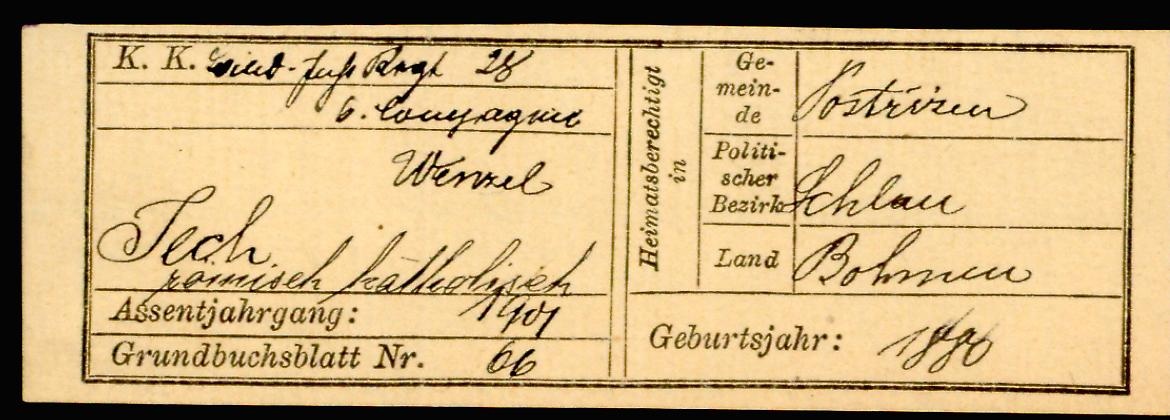 K. K. Inft Regt 28
6. Compagnie
Wenzel
Tech
römisch katholisch
Assentjahrgang: 1901
Grundbuchsblatt Nr. 66
Heimatsberechtigt
in
Ge-
mein-
de
Postrizen
Politi-
scher
Bezirk Schlan
Land Bohmen
Geburtsjahr: